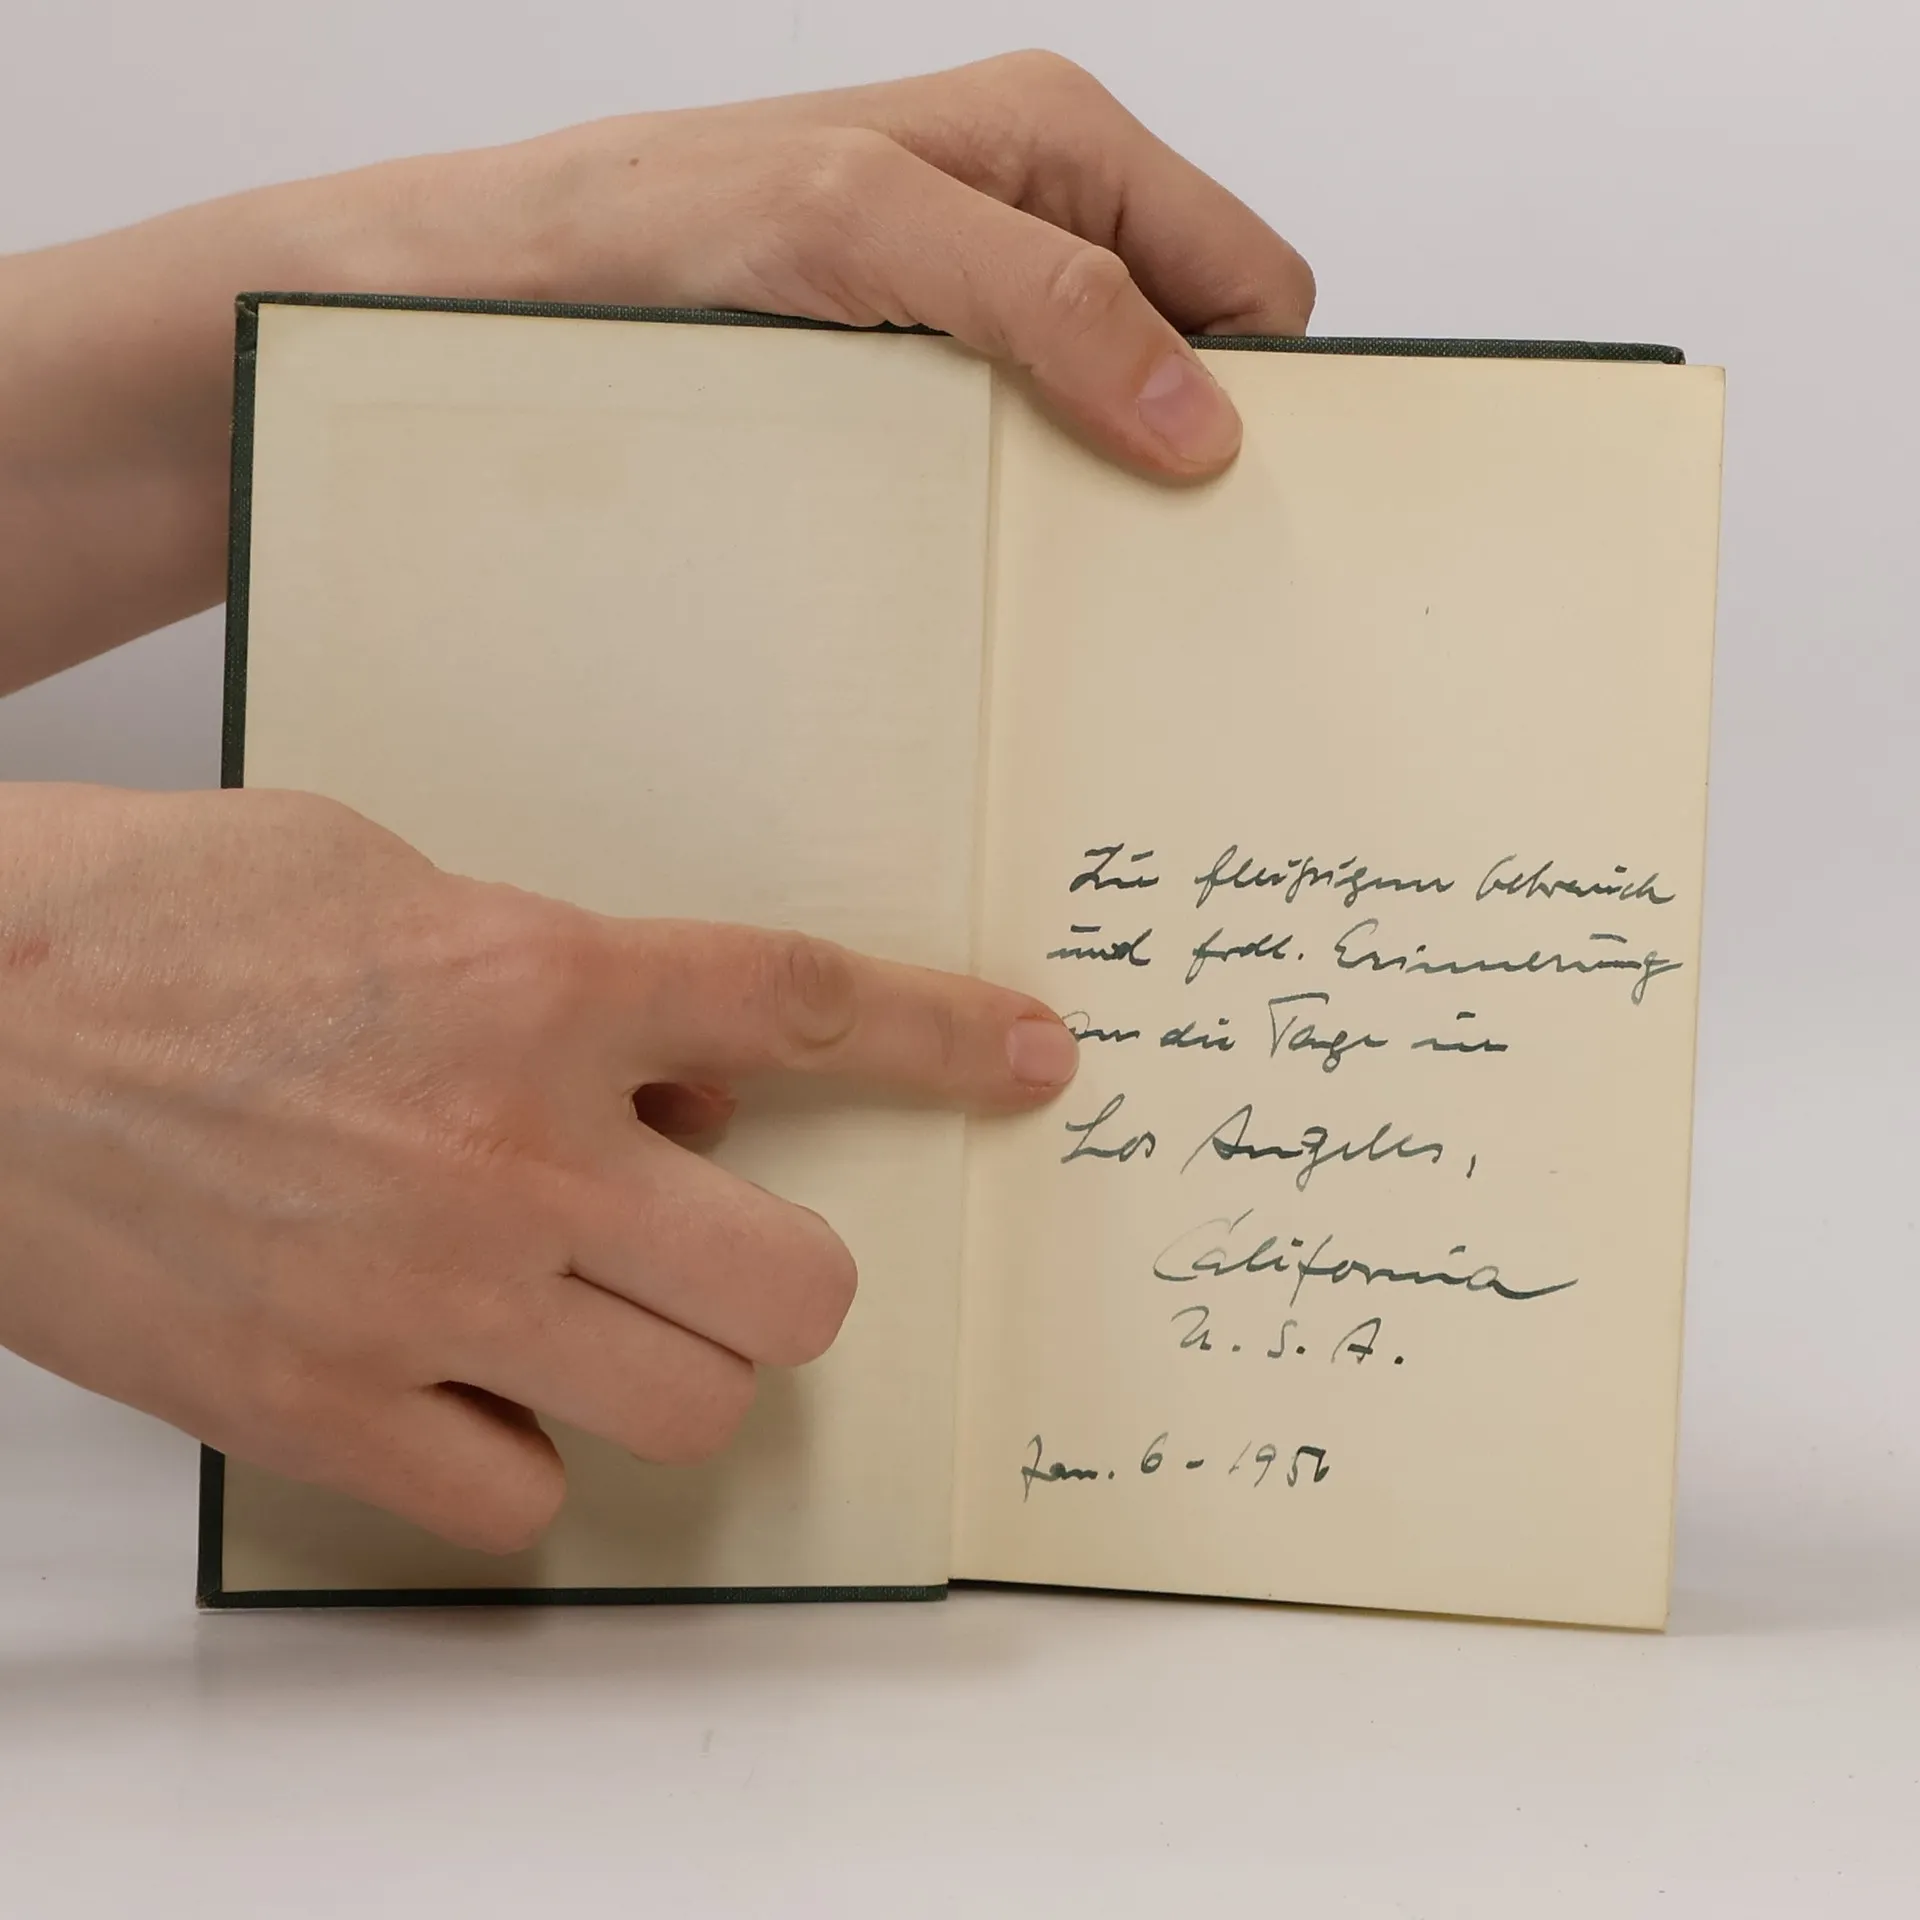 Zu fleißigem Gebrauch
und frdl. Erinnerung
an die Tage in
Los Angeles,
California
U. S. A.
Jan. 6 - 1956